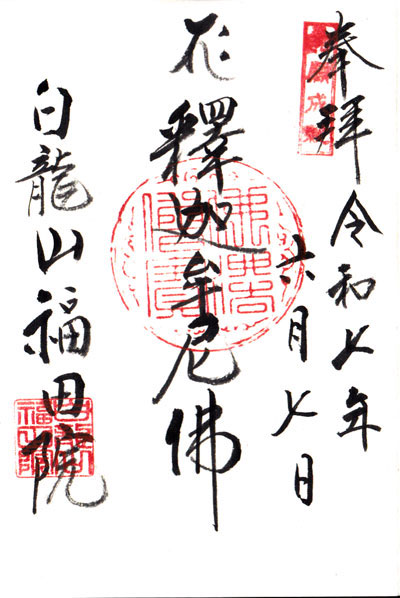 奉拝 令和七年
六月七日
釋迦牟尼佛
白龍山福田院